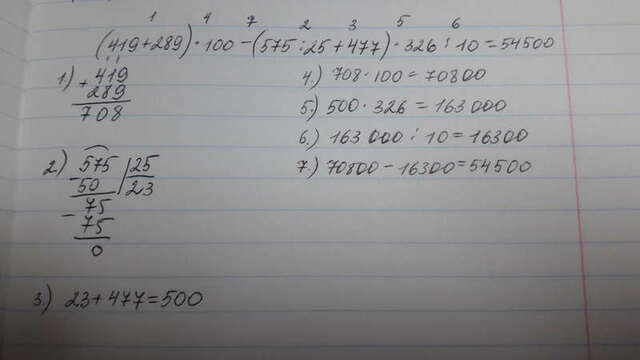 1 4 7 2 3 5 6
(419+289)·100-(575:25+477)·326:10=54500
1) 419
+
289
708
2) 575 25
- 50 23
- 75
75
0
3.) 23+477=500
4.) 708·100=70800
5.) 500·326=163000
6.) 163000:10=16300
7.) 70800-16300=54500